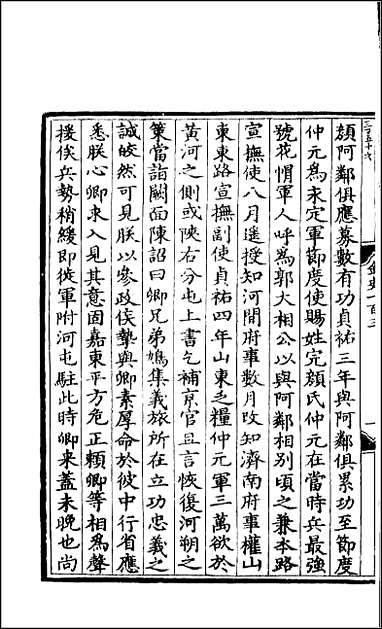 顔阿鄰俱應募數有功貞祐三年與阿鄰俱累功至節度
仲元爲永定軍節度使賜姓完顔氏仲元在當時兵最強
號花㡌軍人呼爲郭大相公以與阿鄰相别頃之兼本路
宣撫使八月遥授知河間府事數月改知濟南府事權山
東東路宣撫副使貞祐四年山東乏糧仲元軍三萬欲於
黄河之側或陜右分屯上書乞補京官且言恢復河朔之
策當詣闕面陳詔曰卿兄弟鳩集義旅所在立功忠義之
誠皎然可見朕以參政侯摯與卿素厚命於彼中行省應
悉朕心卿求入見其意固嘉東平方危正頼卿等相爲聲
援俟兵勢稍緩即徙軍附河屯駐此時卿來蓋未晚也尚
金史一百三